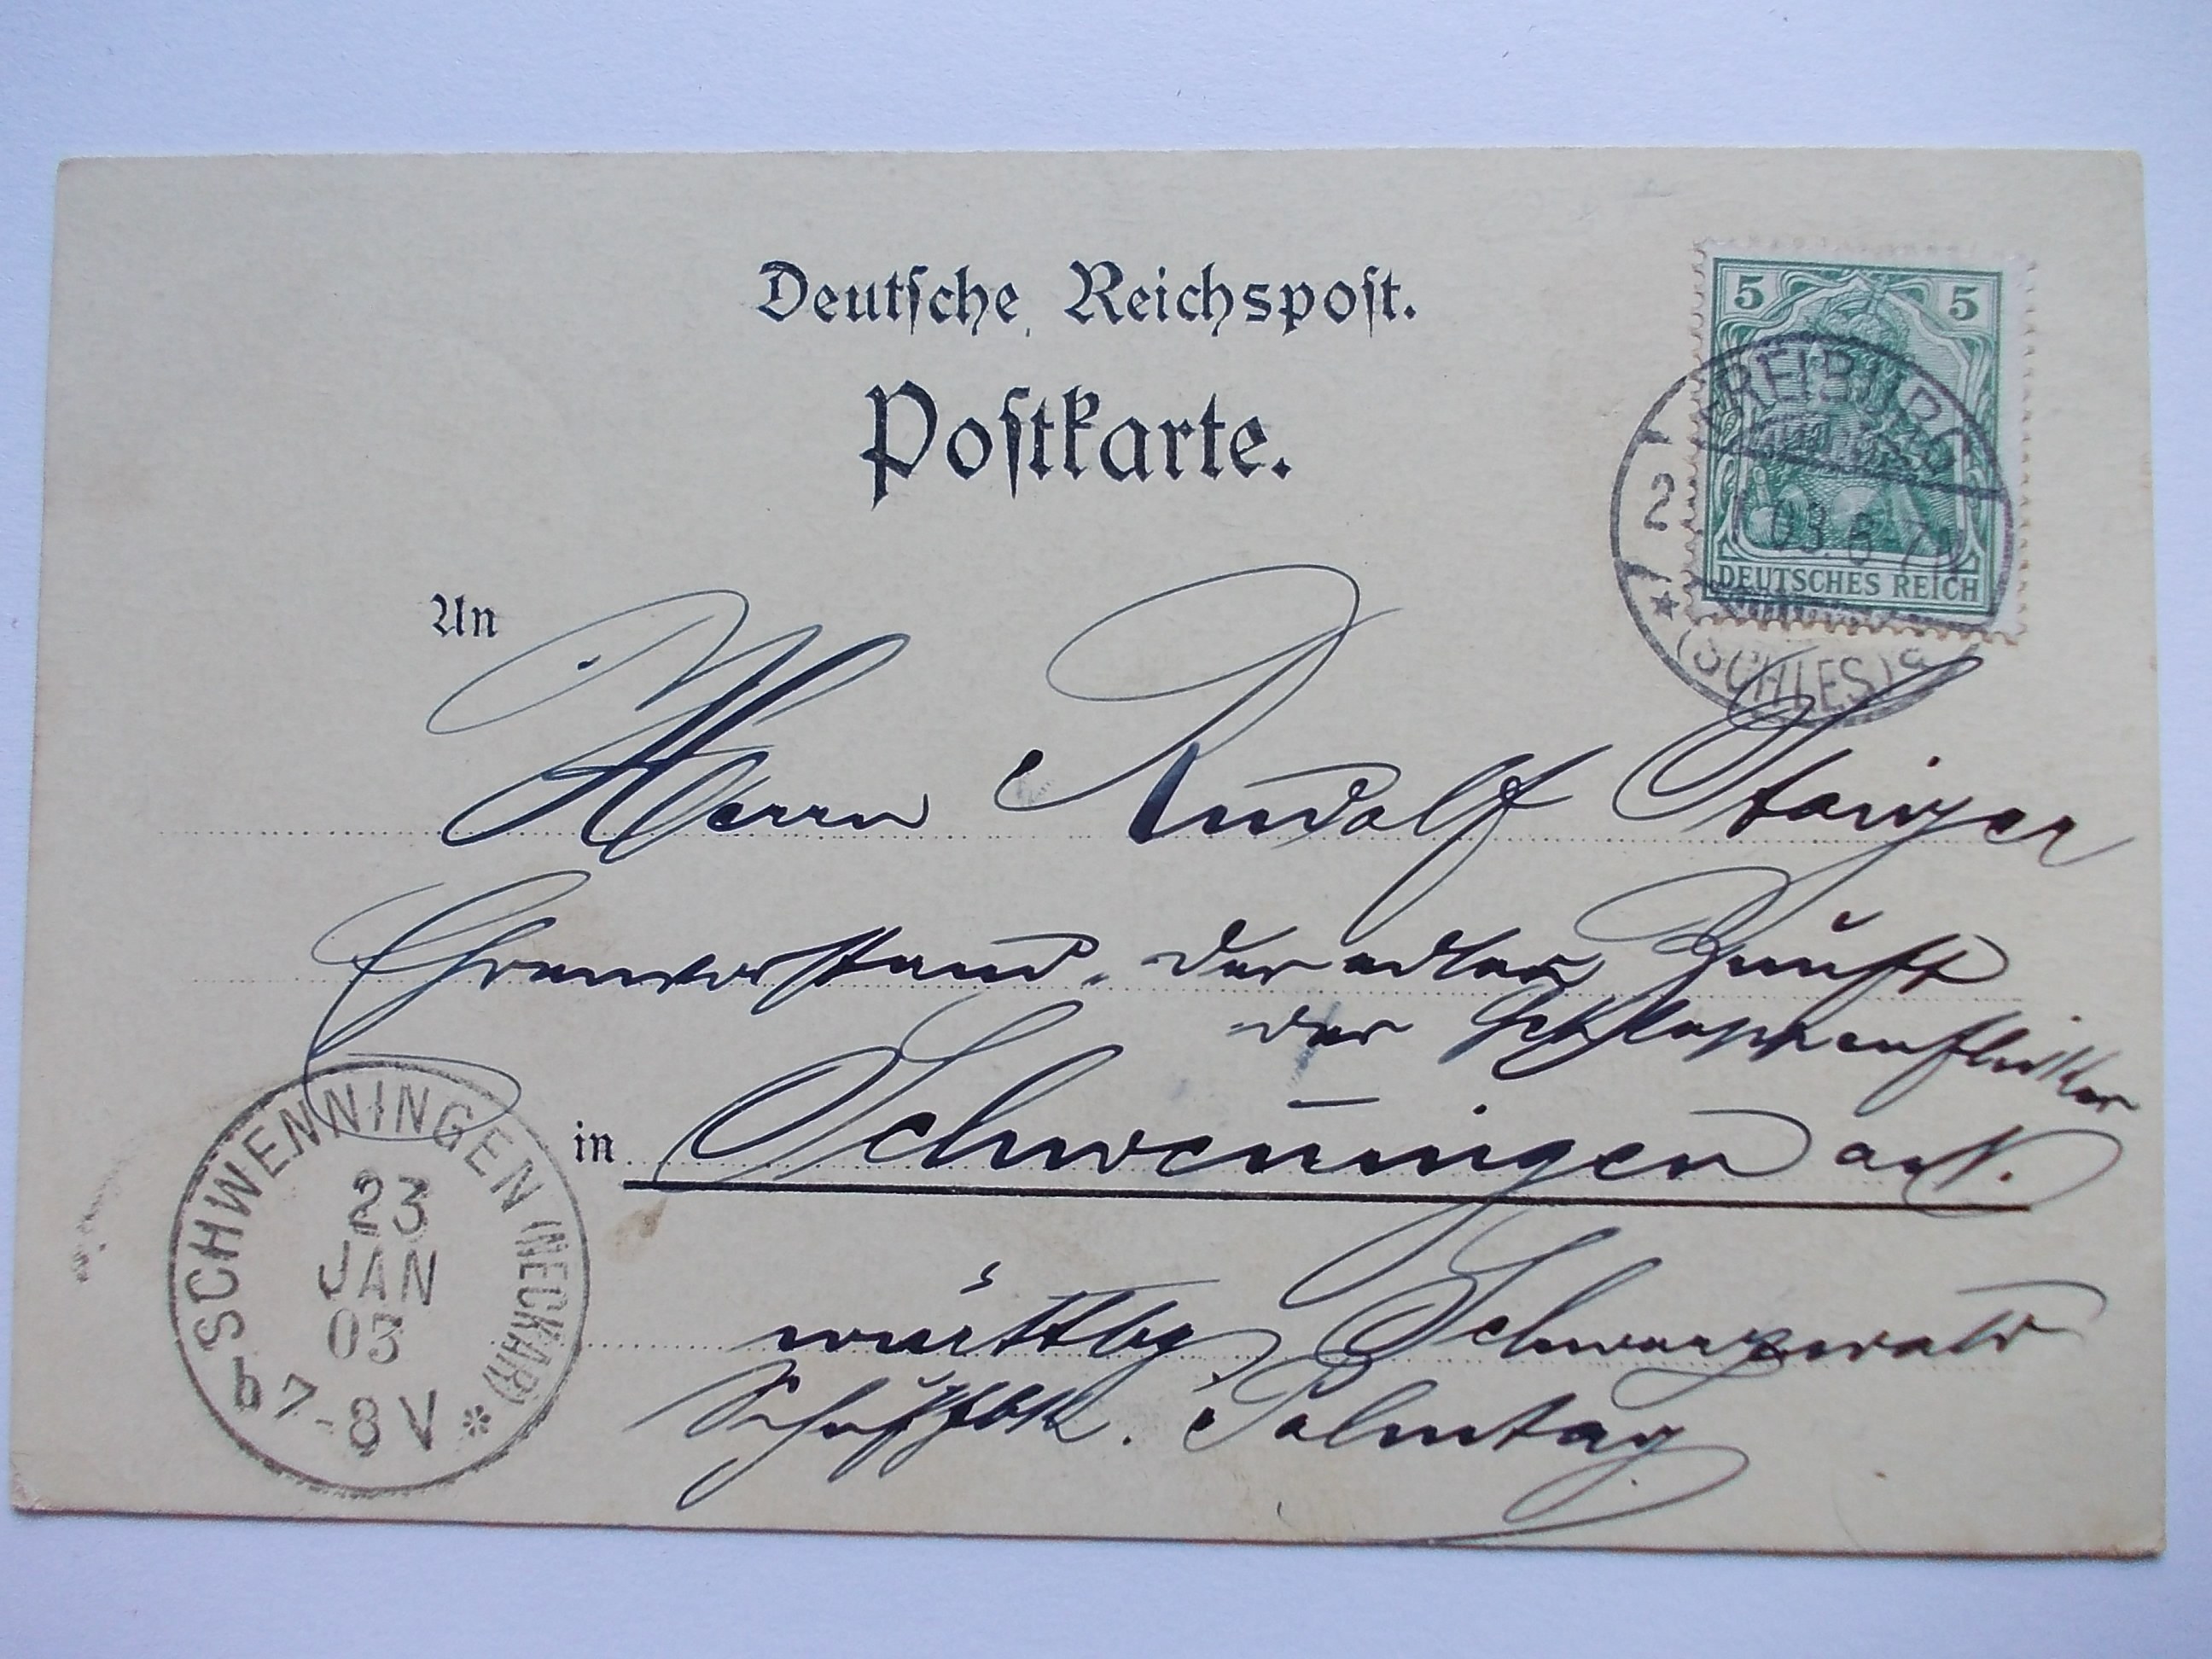 Deutsche Reichspost.
Postkarte.
5 5
DEUTSCHES REICH
FREIBURG
2 1 03. 6-7N
* (SCHLES) c
An
Herrn Rudolf Staiger
Ehrenvorstand der edlen Zunft
der Schlappenflicker
in Schwenningen a. N.
württbg Schwarzwald
SCHWENNINGEN (NECKAR)
23
JAN
03
b 7-8V *